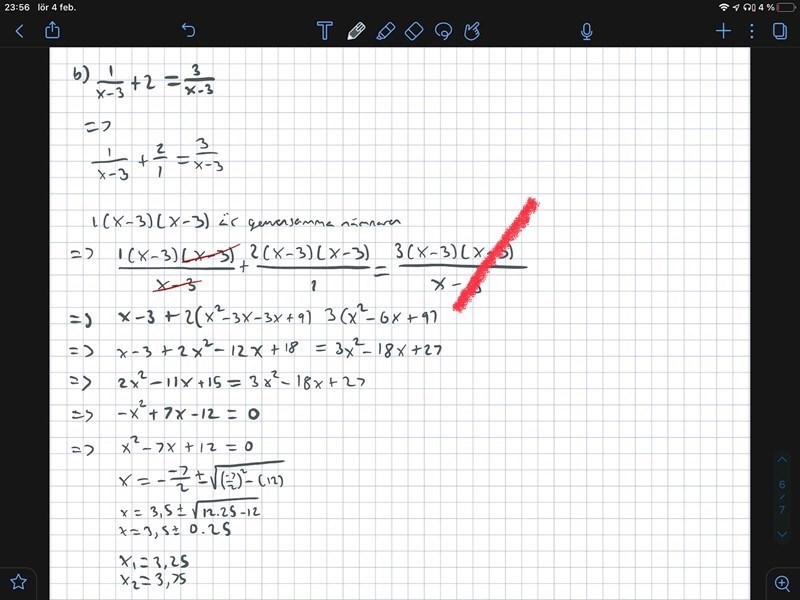 23:56 lör 4 feb. 4 %
b) 1/(x-3) + 2 = 3/(x-3)
=>
1/(x-3) + 2/1 = 3/(x-3)
1(x-3)(x-3) är gemensamma nämnaren
=> 1(x-3)(x-3)/(x-3) + 2(x-3)(x-3)/1 = 3(x-3)(x-3)/(x-3)
=> x-3 + 2(x²-3x-3x+9) 3(x²-6x+9)
=> x-3 + 2x²-12x+18 = 3x²-18x+27
=> 2x²-11x+15 = 3x²-18x+27
=> -x²+7x-12 = 0
=> x²-7x+12 = 0
x = - -7/2 ± √((-7/2)²-(12))
x = 3,5 ± √(12.25-12)
x = 3,5 ± 0.25
x₁ = 3,25
x₂ = 3,75
6
/
7